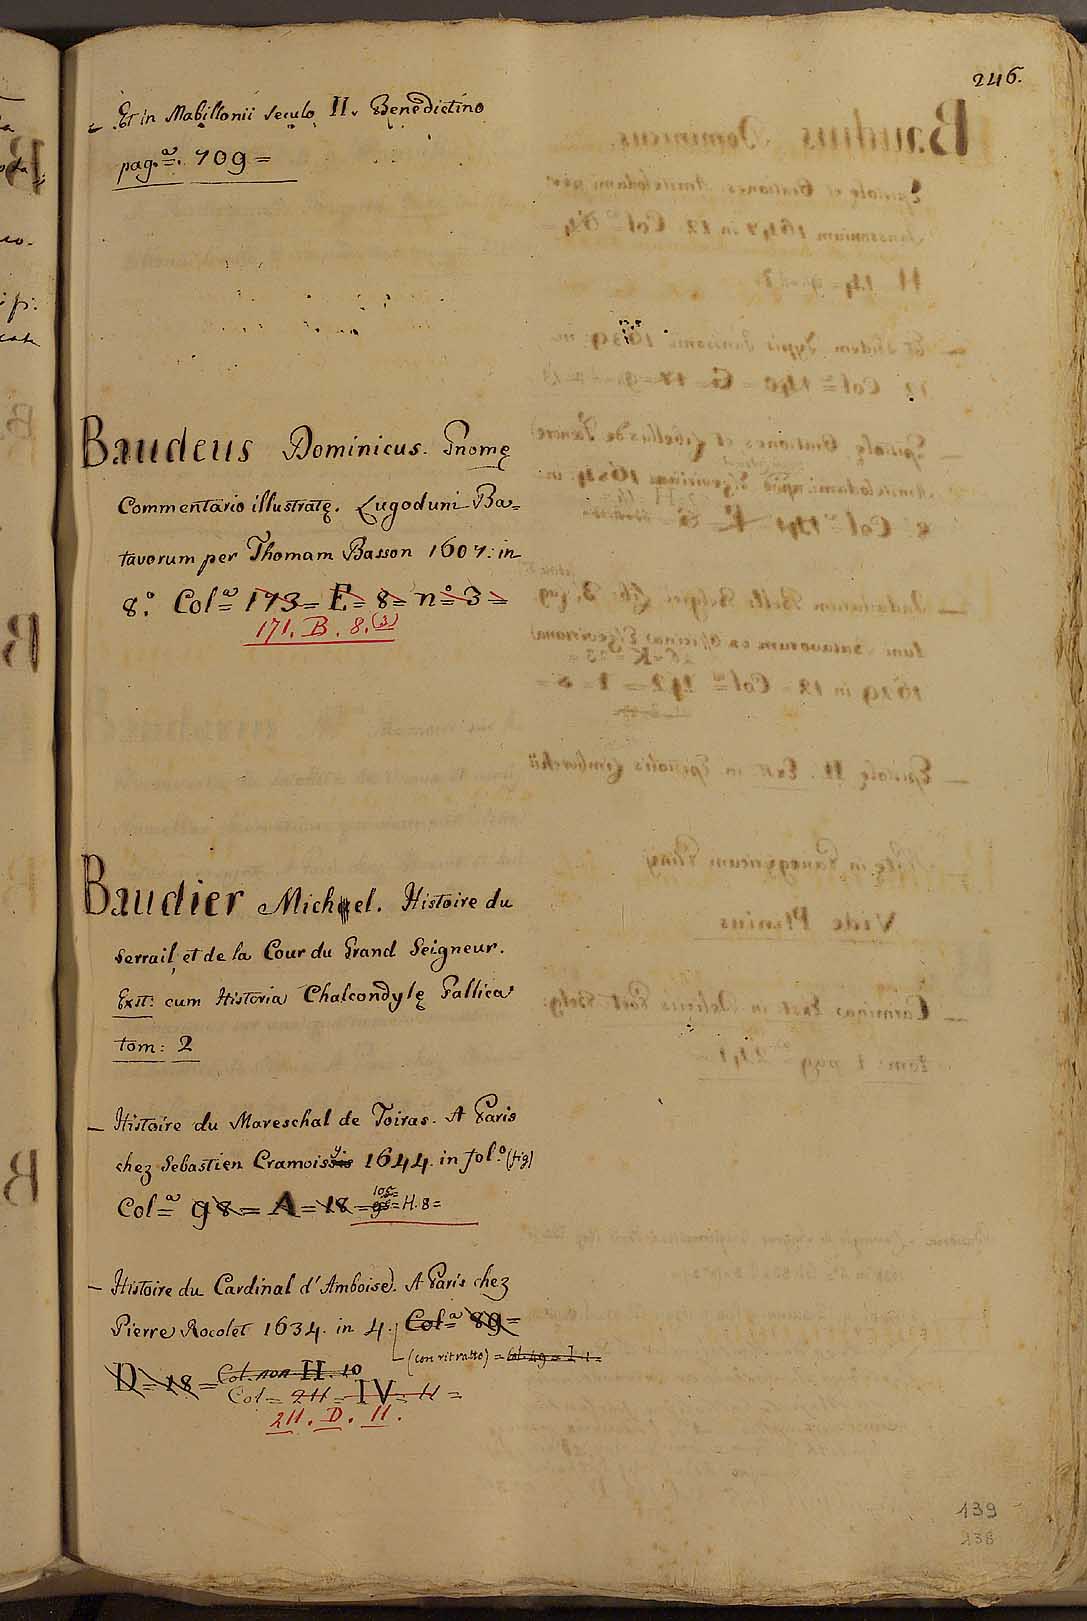 246.
– Et in Mabillonii seculo II. Benedictino
pag.ª 709 =
Baudeus Dominicus. Gnomę
Commentario illustratę. Lugoduni Ba=
tavorum per Thomam Basson 1607: in
8.º Col.ª 173 = E = 8 = nº = 3 =
171. B. 8. (3)
Baudier Michael. Histoire du
Serrail, et de la Cour du Grand Seigneur.
Exst: cum Historia Chalcondylę Gallica
tom: 2
– Histoire du Mareschal de Toiras. A Paris
chez Sebastien Cramoisy 1644. in fol.º (fig)
Col.ª 98 = A = 18 = H. 8 =
– Histoire du Cardinal d'Amboise. A Paris chez
Pierre Rocolet 1634. in 4. Col.ª 89 =
(con ritratto) = Col. 49 = I. 1 =
D = 18 = Col. H. 10
Col = 211 = IV = 11 =
211. D. 11.
139
138